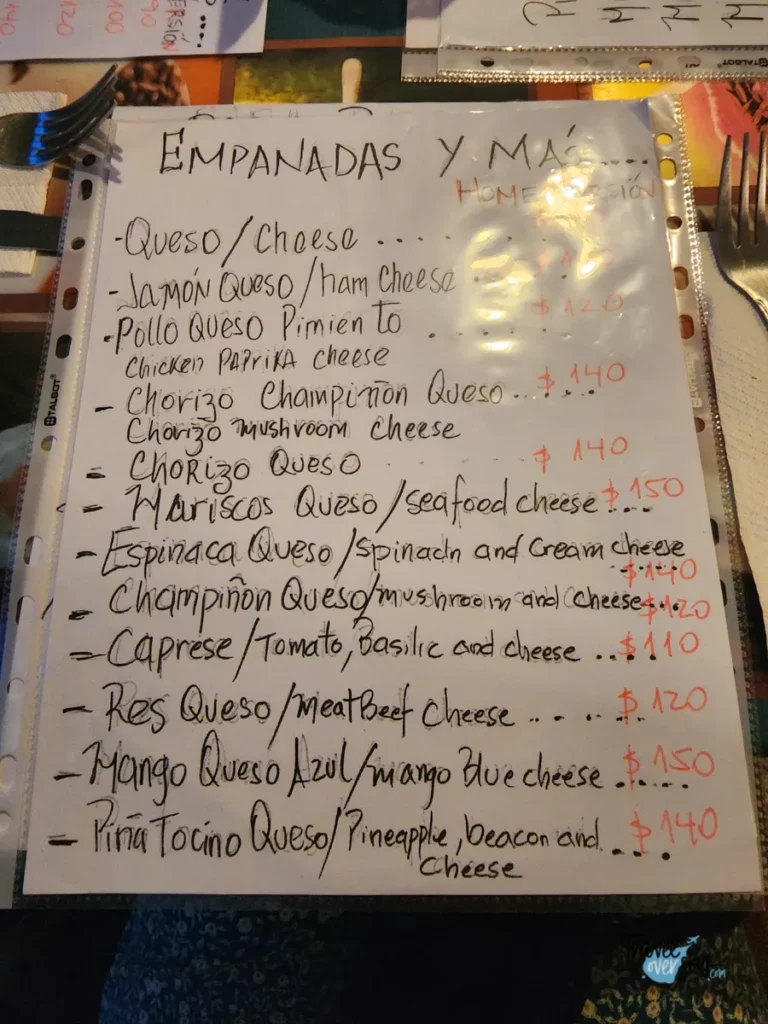 ERSIÓN
90
100
120
140
®TALBOT
EMPANADAS Y MÁS....
HOME VERSIÓN
-QUESO/Cheese ........
-JAMÓN QUESO/ham cheese
-POLLO QUESO PIMIENTO . . . . $120
CHICKEN PAPRIKA cheese
- CHORIZO CHAMPIÑON QUESO ...... $140
CHORIZO MUSHROOM CHEESE
- CHORIZO QUESO ....... $140
- MARISCOS QUESO/seafood cheese .... $150
- ESPINACA QUESO/spinach and cream cheese ...... $140
- CHAMPIÑON QUESO/mushroom and cheese.... $120
- CAPRESE/Tomato, Basilic and cheese ..... $110
- RES QUESO/MeatBeef Cheese ....... $120
- Mango QUESO AZUL/mango Blue cheese ..... $150
- Piña Tocino QUESO/Pineapple, beacon and .... $140
cheese
®TALBOT